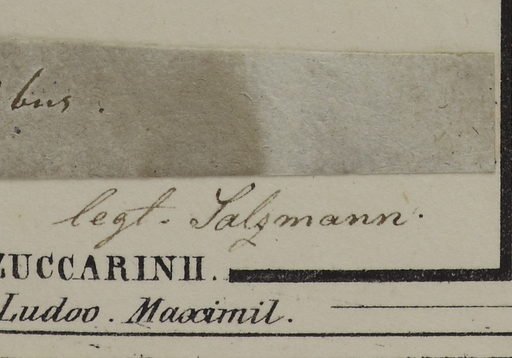 bus.
legt. Salzmann.
ZUCCARINII.
Ludov. Maximil.